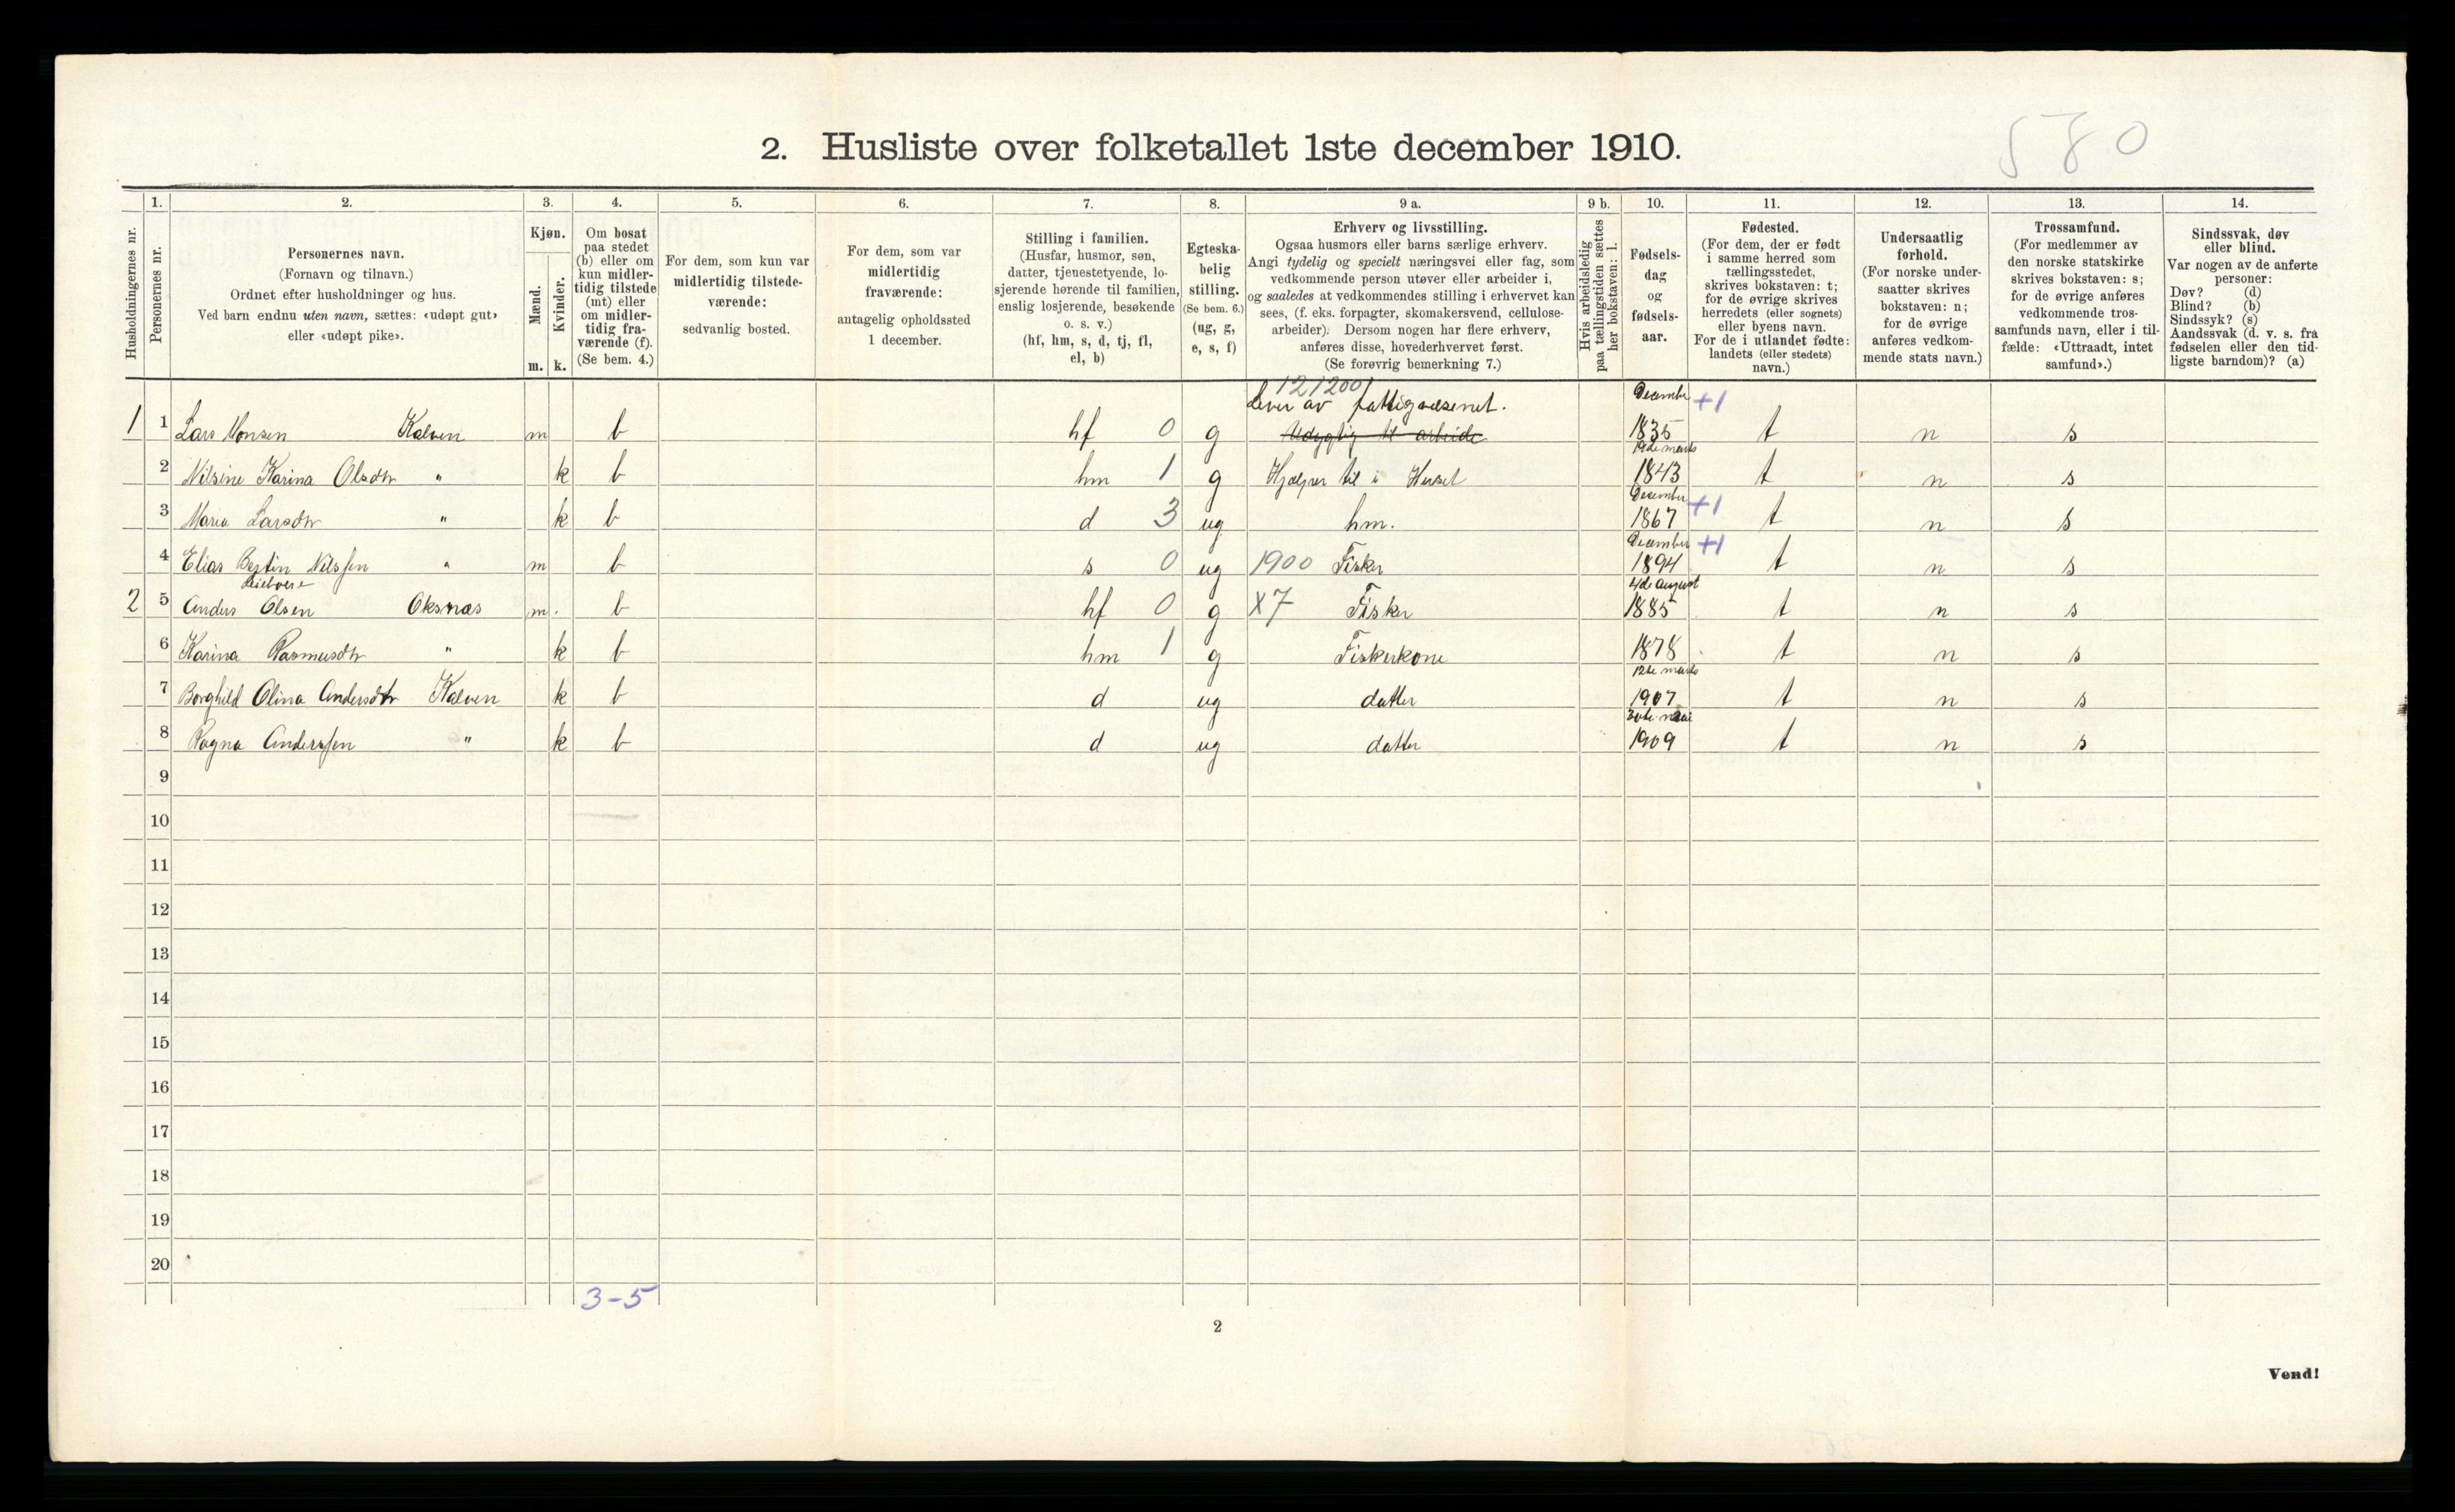 580
2. Husliste over folketallet 1ste december 1910.
Husholdningernes nr.
1. Personernes nr.
2. Personernes navn.
(Fornavn og tilnavn.)
Ordnet efter husholdninger og hus.
Ved barn endnu uten navn, sættes: «udøpt gut»
eller «udøpt pike».
3. Kjøn.
Mænd. Kvinder.
m. k.
4. Om bosat
paa stedet
(b) eller om
kun midler-
tidig tilstede
(mt) eller
om midler-
tidig fra-
værende (f).
(Se bem. 4.)
5. For dem, som kun var
midlertidig tilstede-
værende:
sedvanlig bosted.
6. For dem, som var
midlertidig
fraværende:
antagelig opholdssted
1 december.
7. Stilling i familien.
(Husfar, husmor, søn,
datter, tjenestetyende, lo-
sjerende hørende til familien,
enslig losjerende, besøkende
o. s. v.)
(hf, hm, s, d, tj, fl,
el, b)
8. Egteska-
belig
stilling.
(Se bem. 6.)
(ug, g,
e, s, f)
9 a. Erhverv og livsstilling.
Ogsaa husmors eller barns særlige erhverv.
Angi tydelig og specielt næringsvei eller fag, som
vedkommende person utøver eller arbeider i,
og saaledes at vedkommendes stilling i erhvervet kan
sees, (f. eks. forpagter, skomakersvend, cellulose-
arbeider). Dersom nogen har flere erhverv,
anføres disse, hovederhvervet først.
(Se forøvrig bemerkning 7.)
9 b. Hvis arbeidsledig
paa tællingstiden sættes
her bokstaven: l.
10. Fødsels-
dag
og
fødsels-
aar.
11. Fødested.
(For dem, der er født
i samme herred som
tællingsstedet,
skrives bokstaven: t;
for de øvrige skrives
herredets (eller sognets)
eller byens navn.
For de i utlandet fødte:
landets (eller stedets)
navn.)
12. Undersaatlig
forhold.
(For norske under-
saatter skrives
bokstaven: n;
for de øvrige
anføres vedkom-
mende stats navn.)
13. Trossamfund.
(For medlemmer av
den norske statskirke
skrives bokstaven: s;
for de øvrige anføres
vedkommende tros-
samfunds navn, eller i til-
fælde: «Uttraadt, intet
samfund».)
14. Sindssvak, døv
eller blind.
Var nogen av de anførte
personer:
Døv? (d)
Blind? (b)
Sindssyk? (s)
Aandssvak (d. v. s. fra
fødselen eller den tid-
ligste barndom)? (a)
121200
Lever av fattigvæsenet. December +1
1 1 Lars Monsen Kalven m b hf 0 g Udygtig til arbeide 1835 t n s
19de marts
2 Nilsine Karina Olsdtr " k b hm 1 g Hjælper til i Huset 1843 t n s
December +1
3 Maria Larsdtr " k b d 3 ug hm. 1867 t n s
December +1
4 Elias Bertin Nilssen " m b s 0 ug 1900 Fisker 1894 t n s
4de august
2 5 Anders Olsen Oksnæs m. b hf 0 g X7 Fisker 1885 t n s
6 Karina Rasmusdtr " k b hm 1 g Fiskerkone 1878 t n s
12te marts
7 Borghild Olina Andersdtr Kalven k b d ug datter 1907 t n s
30te mai
8 Ragna Anderssen " k b d ug datter 1909 t n s
9
10
11
12
13
14
15
16
17
18
19
20
3-5
2
Vend!